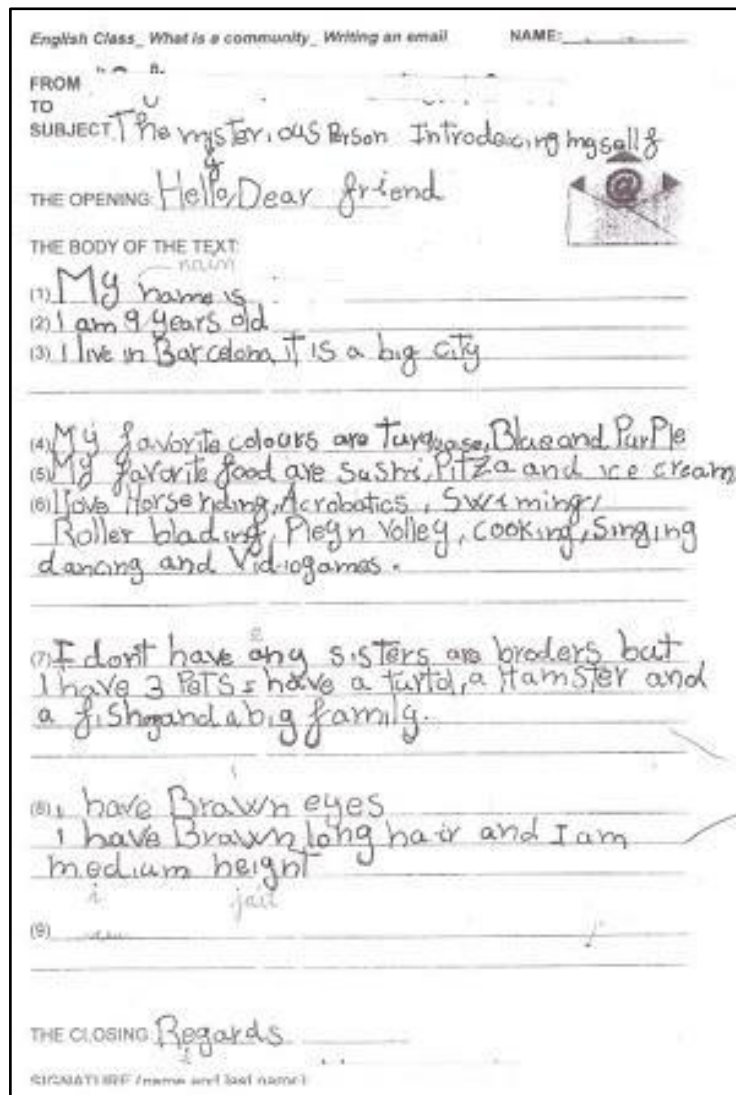 English Class_ What is a community_ Writing an email NAME:
FROM
TO
SUBJECT The misterious Person Introducing mysellf
y
THE OPENING: Hello, Dear friend
THE BODY OF THE TEXT:
naim
(1) My name is
(2) I am 9 years old
(3) I live in Barcelona, it is a big city
(4) My favorite colours are Turquase, Blue and PurPle
(5) My favorite food are sushi, PiTza and ice cream
(6) I love Horse riding, Acrobatics, Swiming,
Roller blading, Pleyn Volley, cooking, Singing
dancing and Vidiogames.
e
(7) I don't have any sisters are broders but
I have 3 PeTS I have a turtd, a Hamster and
a fish and a big family.
(8) i have Brawn eyes
i have Brawn long hair and I am
medium height
i jait
(9)
THE CLOSING: Regards
SIGNATURE (name and last name):